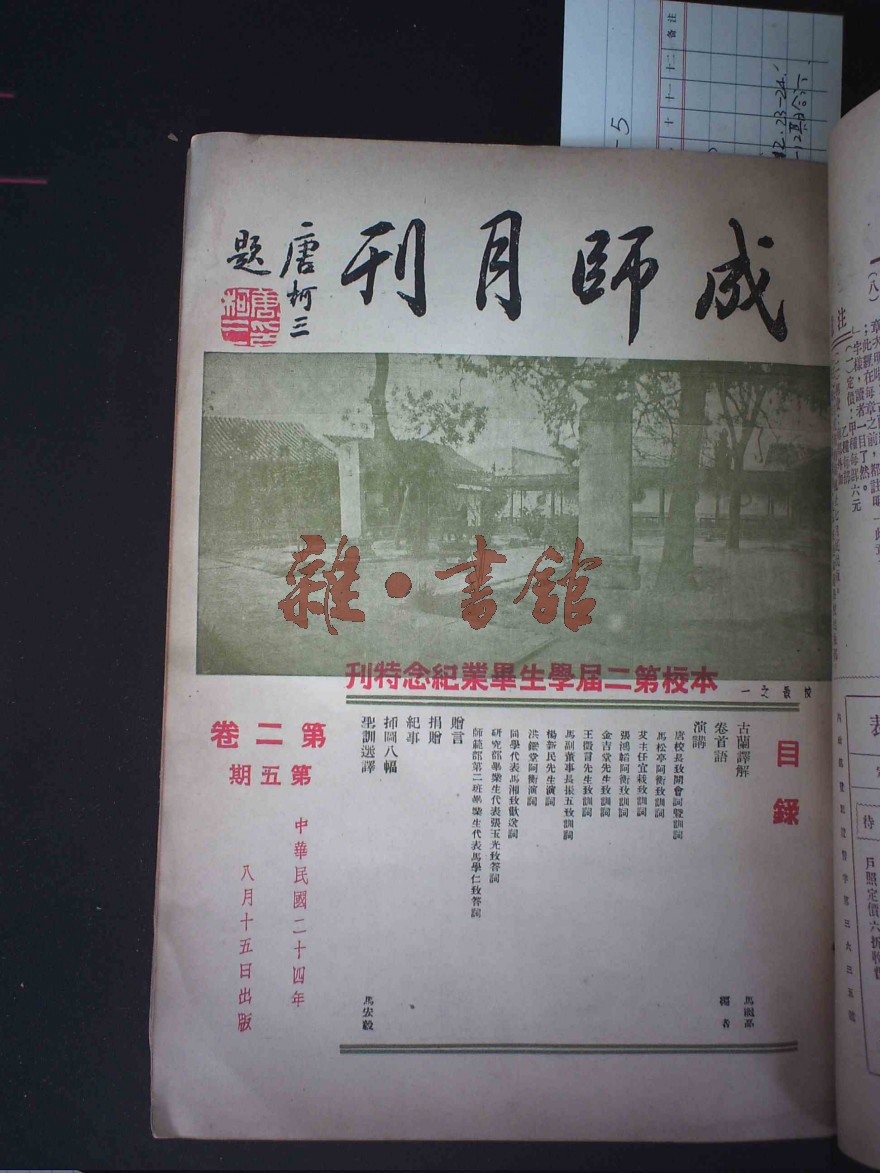 成師月刊
唐柯三
題
唐柯三印
雜·書館
本校第二屆學生畢業紀念特刊
校景之一
目錄
古蘭譯解
卷首語
編者
演講
唐校長致開會詞暨訓詞
馬松亭阿衡致訓詞
艾主任宜栽致訓詞
張鴻韜阿衡致訓詞
金吉堂先生致訓詞
王徵言先生致訓詞
馬副董事長振五致訓詞
楊新民先生演詞
洪鑑堂阿衡演詞
同學代表馬湘致歡送詞
研究部畢業生代表張玉光致答詞
師範部第二班畢業生代表馬學仁致答詞
贈言
捐贈
紀事
插圖八幅
聖訓選譯
馬宏毅
第二卷
第五期
中華民國二十四年
八月十五日出版
備注
十二
十一
十
5
(八)
注
一字樣,讀者一目了然。
戶照定價六折收費
待